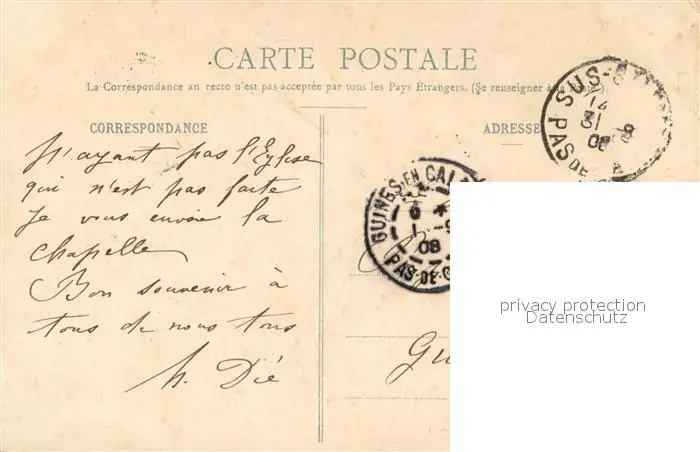 CARTE POSTALE
La Correspondance au recto n'est pas acceptée par tous les Pays Étrangers. (Se renseigner à la Poste.)
CORRESPONDANCE
ADRESSE
N'ayant pas l'Eglise
qui n'est pas faite
Je vous envoie la
chapelle
Bon souvenir à
tous de nous tous
h. Dié
SUS-S
14
31 -8
08
PAS DE
GUINES-EN-CALAI
6
1 -9
08
PAS-DE-C
Gu
privacy protection
Datenschutz